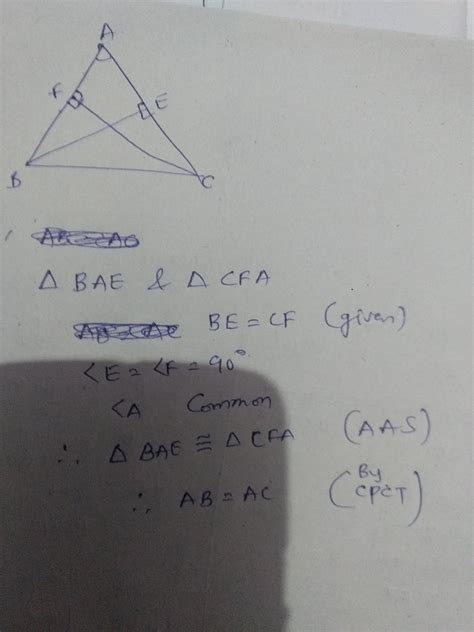 A
F
E
B
C
Δ BAE & Δ CFA
BE = CF (given)
<E = <F = 90°
<A Common
∴ Δ BAE ≅ Δ CFA (AAS)
∴ AB = AC (By CPCT)